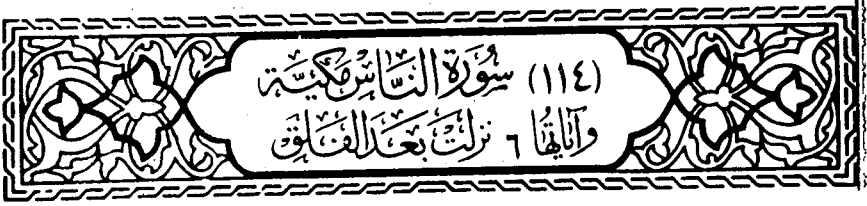 (١١٤) سُورَة النَّاسِ مَكيَّة
وَآيَاتهَا ٦ نَزلَتْ بَعْدَ الفَلَق